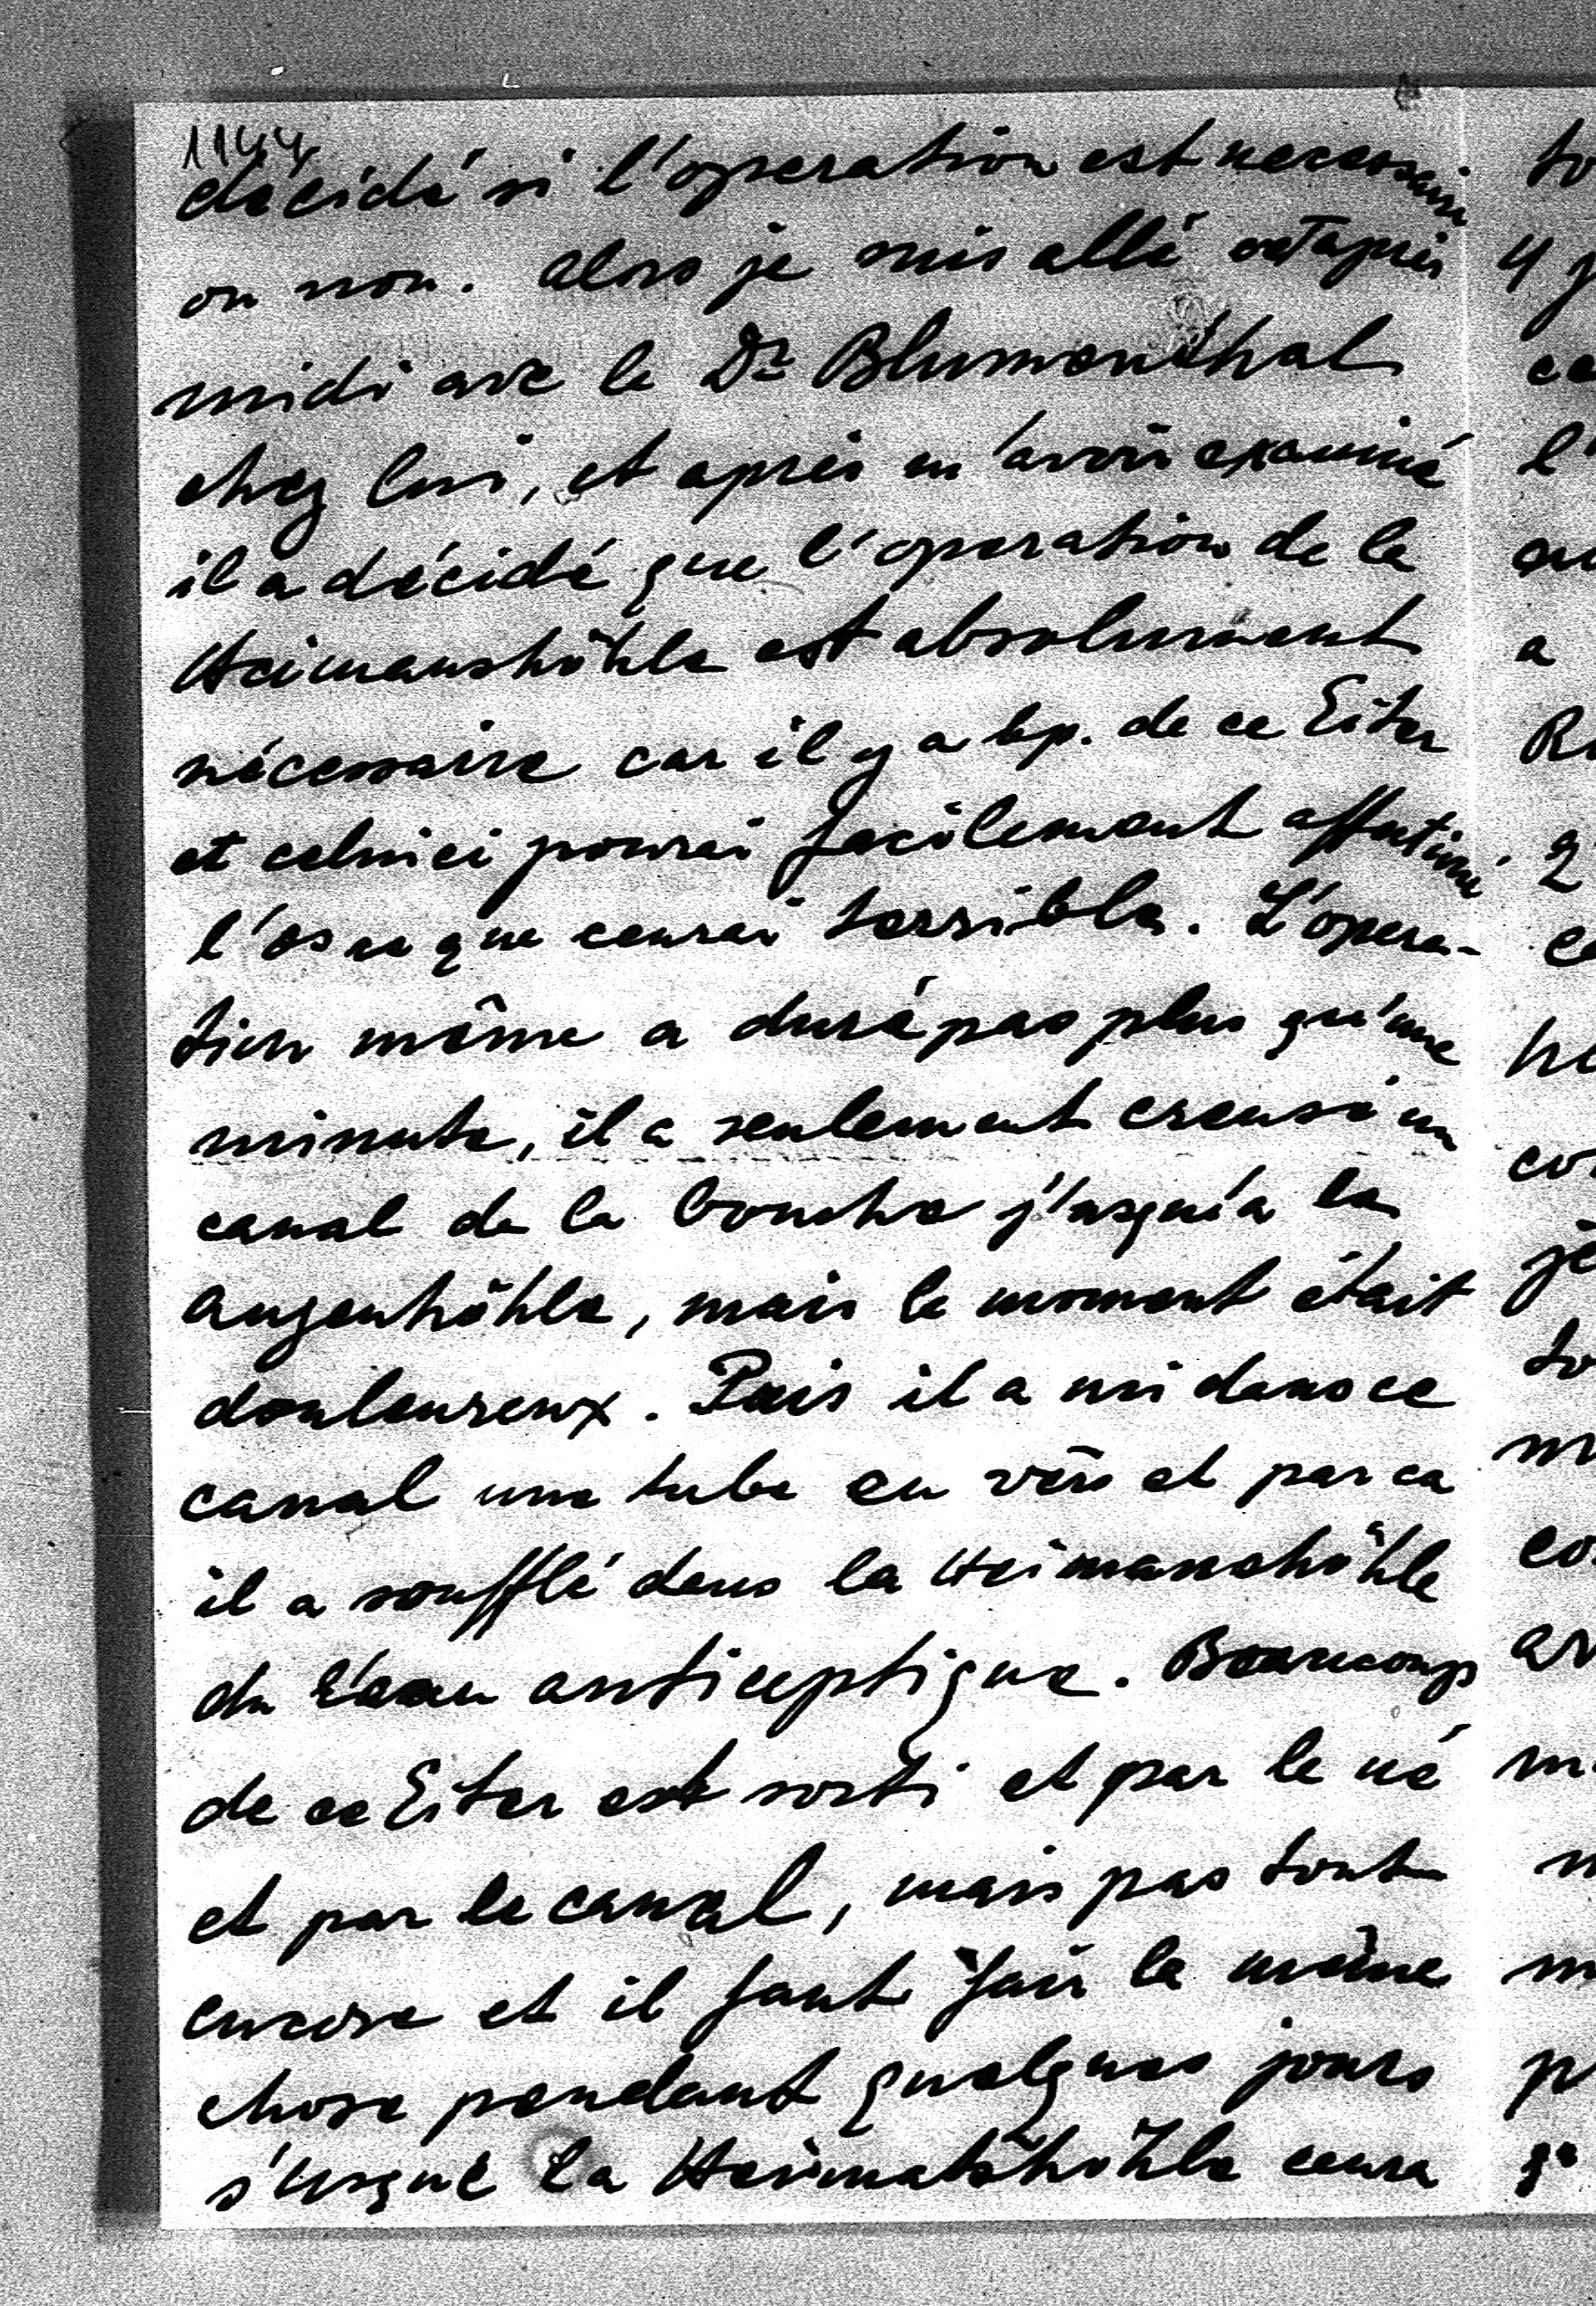 1144
décidé si l'operation est necessaire
ou non. Alors je suis allé cet après
midi avec le Dr Blumenthal
chez lui, et après m'avoir examiné
il a décidé que l'operation de la
Heimanshöhle est absolument
nécessaire car il y a bp. de ce Eiter
et celuici pourai facilement
l'os ce que ceurai terrible. L'opera-
tion même a duré pas plus qu'une
minute, il a seulement creusé un
canal de la bouche j'usqu'a la
Augenhöhle, mais le moment était
douloureux. Puis il a mi dans ce
canal une tube en vère et par ca
il a soufflé dans la Heimanshöhle
du l'eau anticeptique. Beaucoup
de ce Eiter est sorti et par le né
et par le canal, mais pas tout
encore et il faut fair la même
chose pendant quelques jours
s'usque la Heimatshöhle ceura